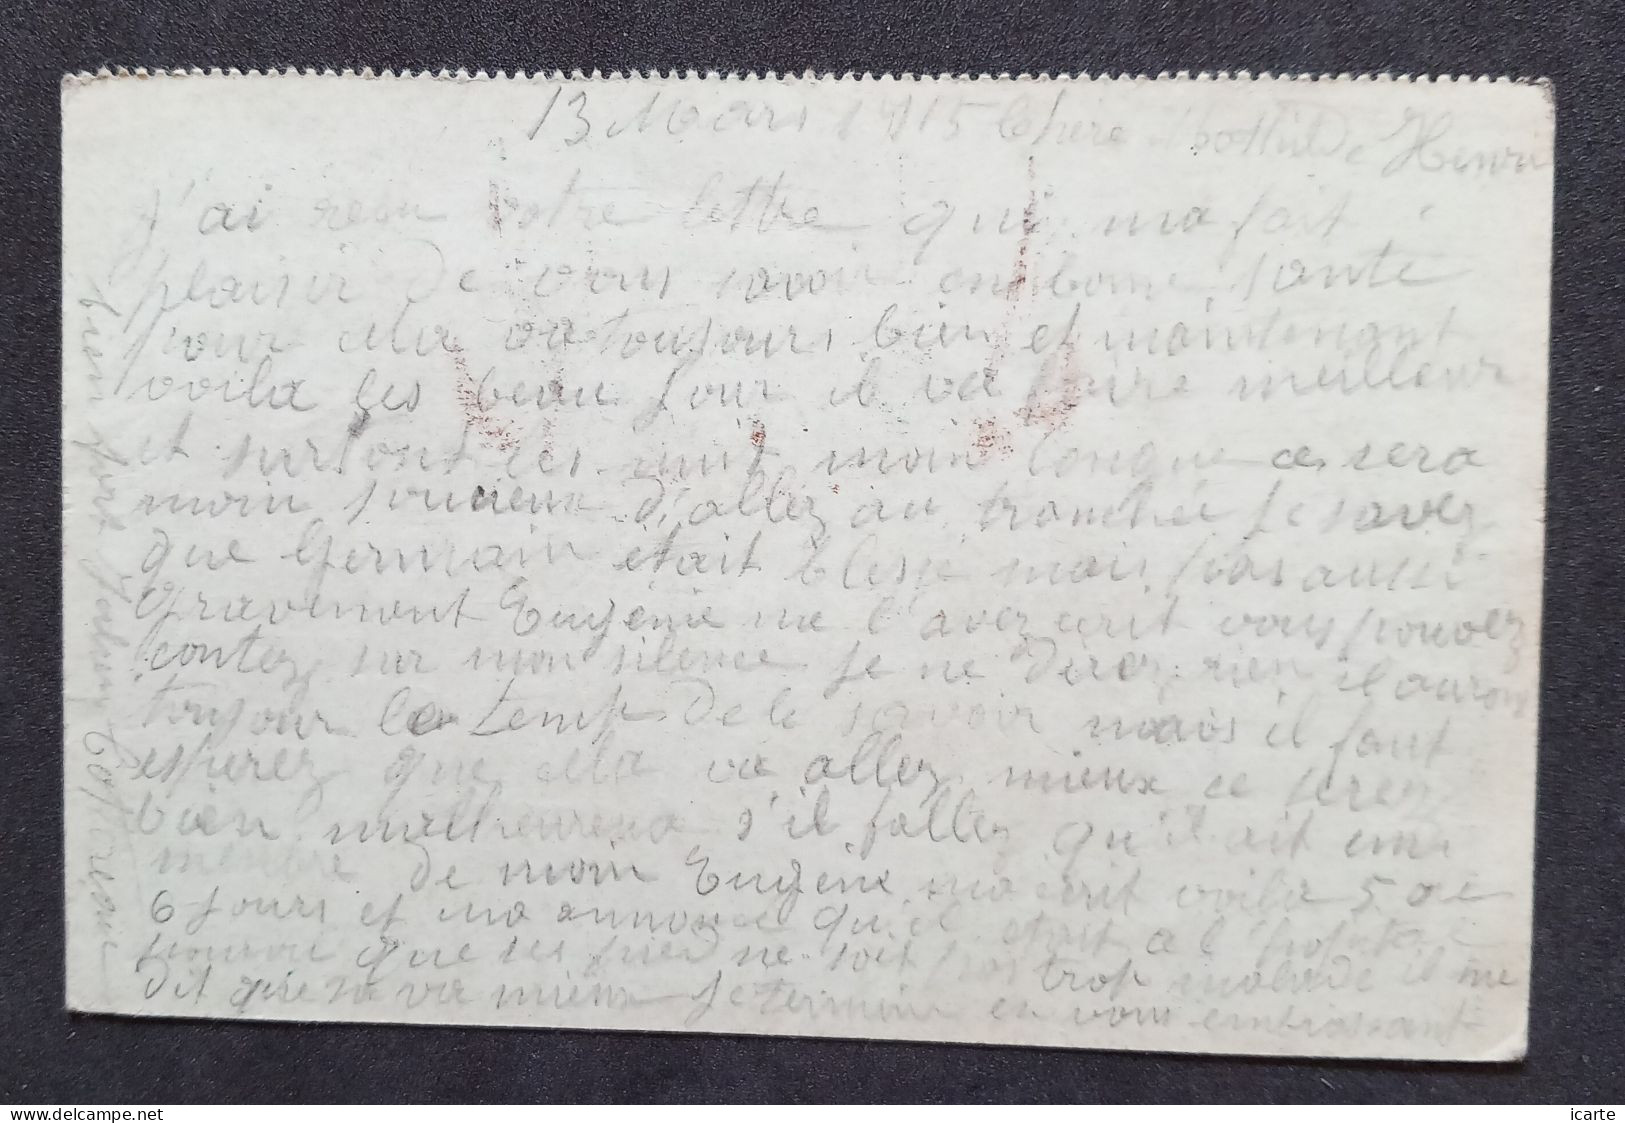 13 Mars 1915 Chère Clothilde Henri
J'ai resu votre lettre qui ma fait
plaisir de vous savoir en bonne santé
pour cela va toujours bien et maintenant
voila les beau jour il va faire meilleur
et surtout les nuit moin longue ce sera
moin soucieux d'allez au tranchée je savez
que Germain etait blessé mais pas aussi
gravement Eugénie me l'avez ecrit vous pouvez
contez sur mon silence je ne direz rien il auront
toujour le temp de le savoir mais il faut
esperez que cela va allez mieux ce serez
bien malheureux s'il fallez qu'il ait un
membre de moin Eugène ma ecrit voila 5 a
6 jours et ma annoncé qu'il etait a l'hopital
pourvu que ses pied ne soit pas trop malade il me
dit que sa va mieux je termine en vous embrassant
bien fort
delcampe.net
icarte